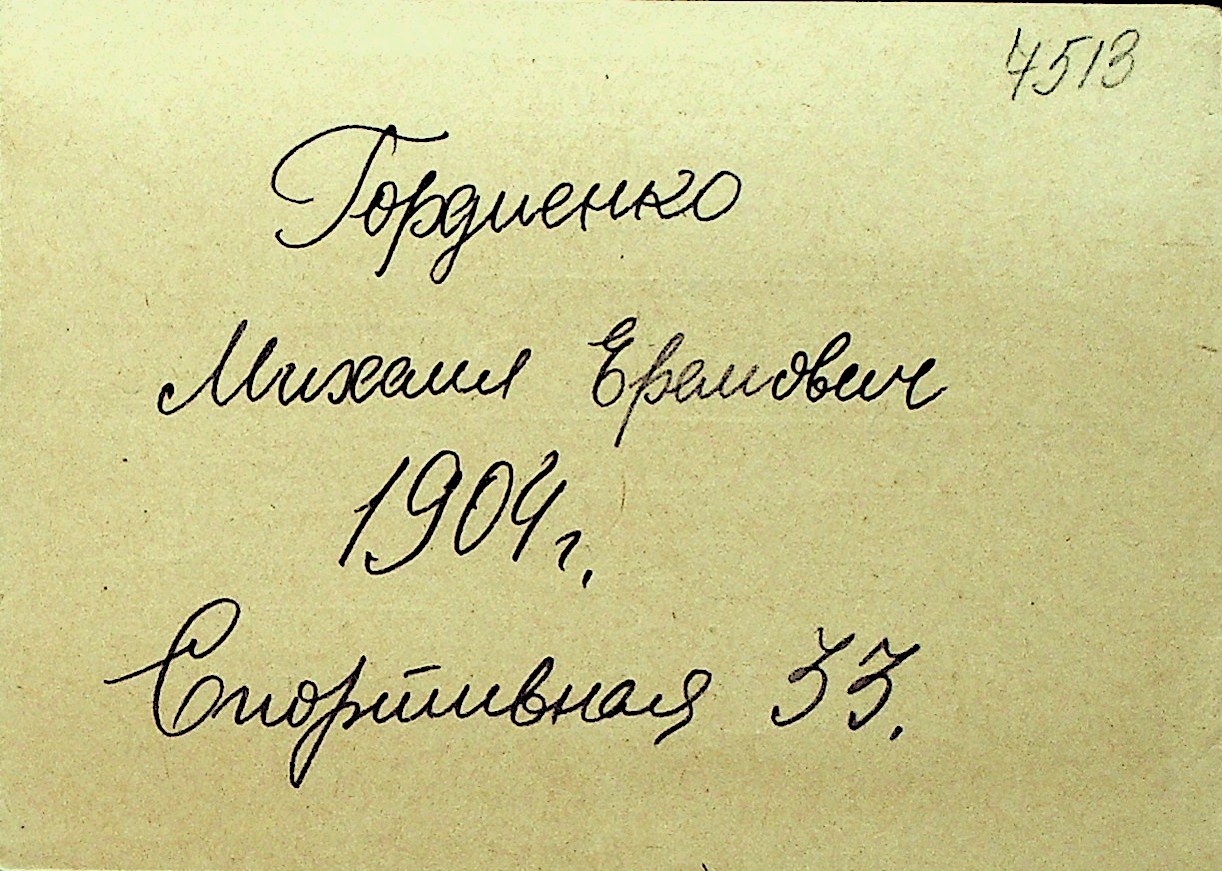 4513
Гордиенко
Михаил Еремович
1904 г.
Спортивная 33.